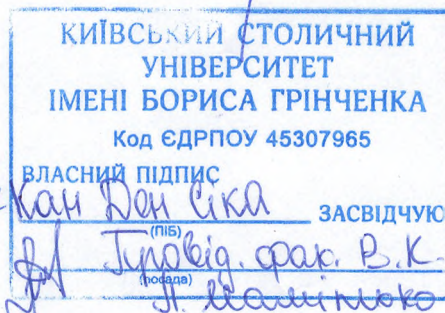 КИЇВСЬКИЙ СТОЛИЧНИЙ
УНІВЕРСИТЕТ
ІМЕНІ БОРИСА ГРІНЧЕНКА
Код ЄДРПОУ 45307965
ВЛАСНИЙ ПІДПИС
Кан Ден Сіка ЗАСВІДЧУЮ
(ПІБ)
Провід. фах. В.К.
(посада)